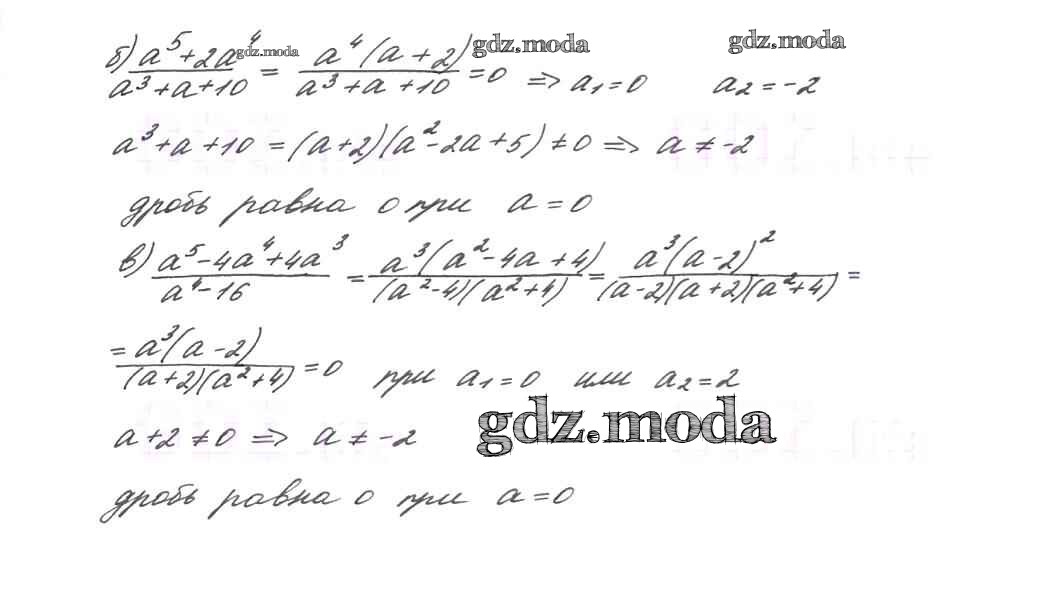 б) a⁵+2a⁴ / a³+a+10 = a⁴(a+2) / a³+a+10 = 0 => a₁=0 a₂=-2
gdz.moda gdz.moda gdz.moda
a³+a+10 = (a+2)(a²-2a+5) ≠ 0 => a ≠ -2
дробь равна 0 при a = 0
в) a⁵-4a⁴+4a³ / a⁴-16 = a³(a²-4a+4) / (a²-4)(a²+4) = a³(a-2)² / (a-2)(a+2)(a²+4) =
= a³(a-2) / (a+2)(a²+4) = 0 при a₁=0 или a₂=2
gdz.moda
a+2 ≠ 0 => a ≠ -2
дробь равна 0 при a=0